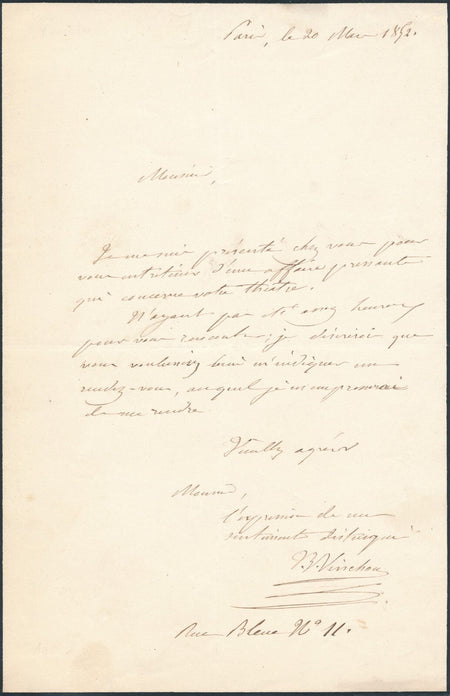 Paris, le 20 Mars 1852.
Monsieur,
Je me suis présenté chez vous pour
vous entretenir d'une affaire pressante
qui concerne votre théatre.
N'ayant pas été assez heureux
pour vous rencontrer; je désirerai que
vous voulussiez bien m'indiquer un
rendez-vous, auquel je m'empresserai
de me rendre.
Veuillez agréer
Monsieur,
l'expression de mes
sentiments distingués
Rue Bleue No 11.